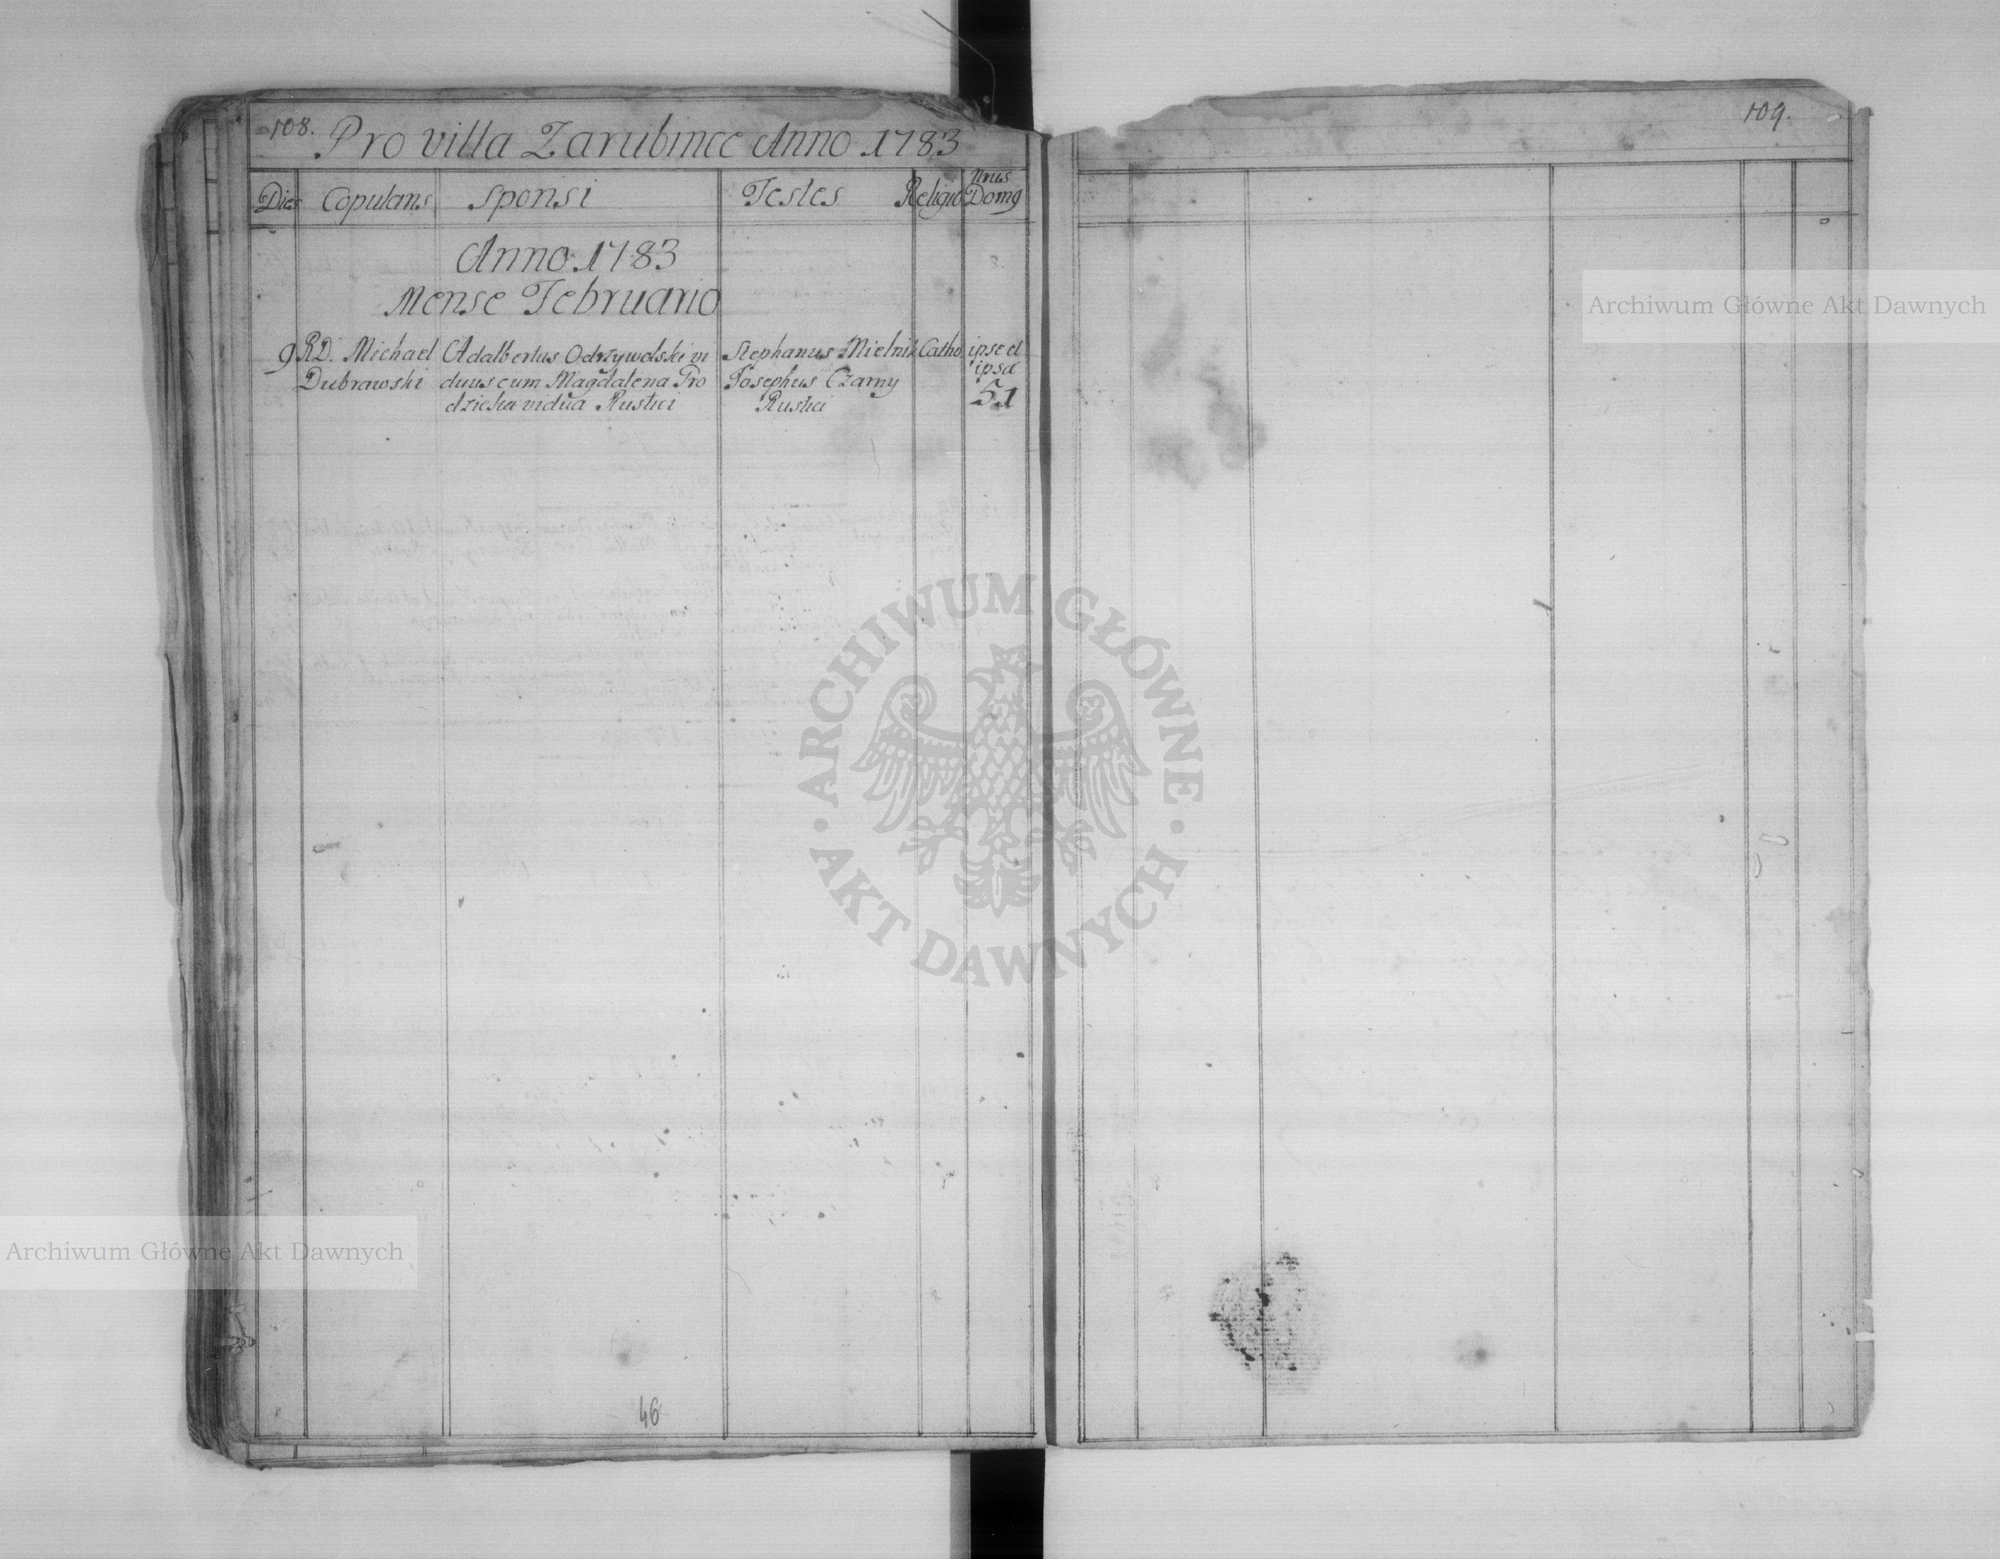 108.
Pro villa Zarubince Anno 1783
Dies Copulans Sponsi Testes Religio Nrus Dom9
Anno 1783
Mense Februario
9 RD. Michael Adalbertus Odrzywolski vi Stephanus Mielnik Catho ipse et
Dubrawski duus cum Magdalena Pro Josephus Czarny ipsa
dzicka vidua Rustici Rustici 51
46
109.
Archiwum Główne Akt Dawnych
ARCHIWUM GŁÓWNE AKT DAWNYCH
Archiwum Główne Akt Dawnych